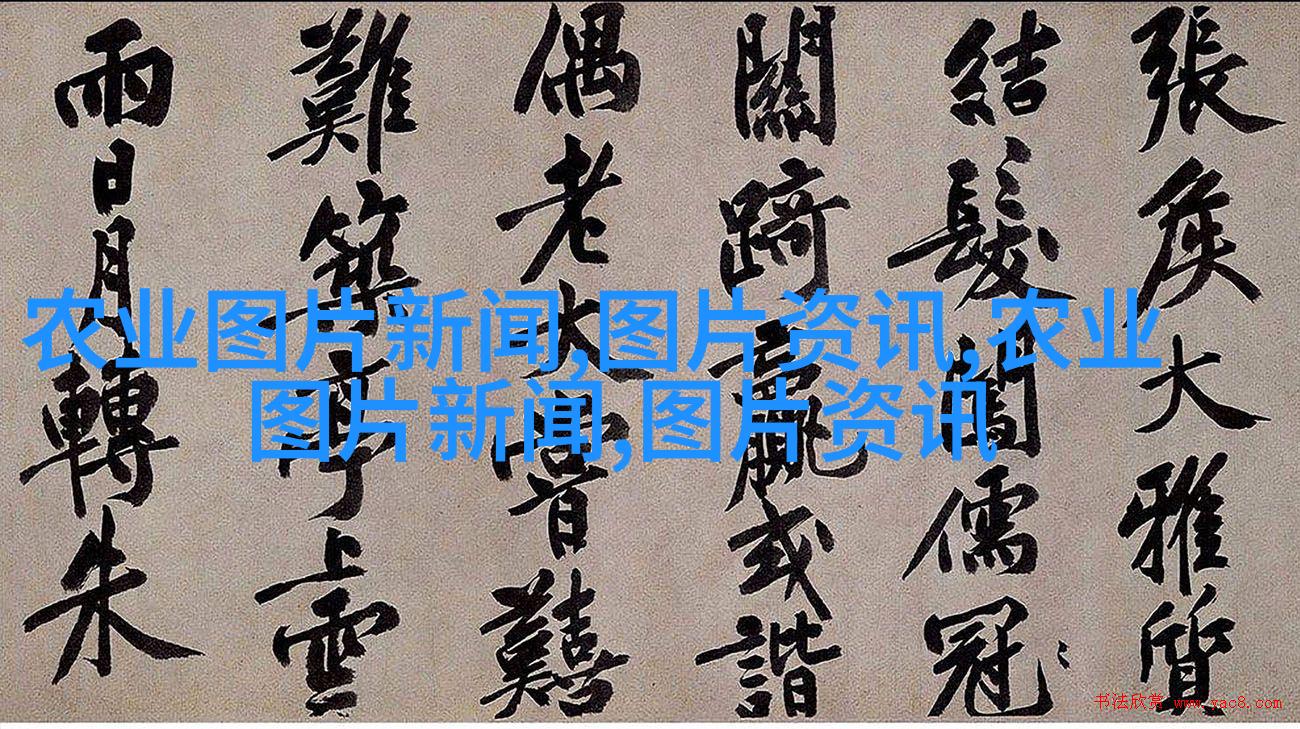 張侯大雅質
結髮儒冠
關踦或諧
偶老大嘗囏
難築亭上雲
雨日月轉朱
农业图片新闻,图片资讯,农业
图片新闻,图片资讯
书法欣赏 www.yac8.com